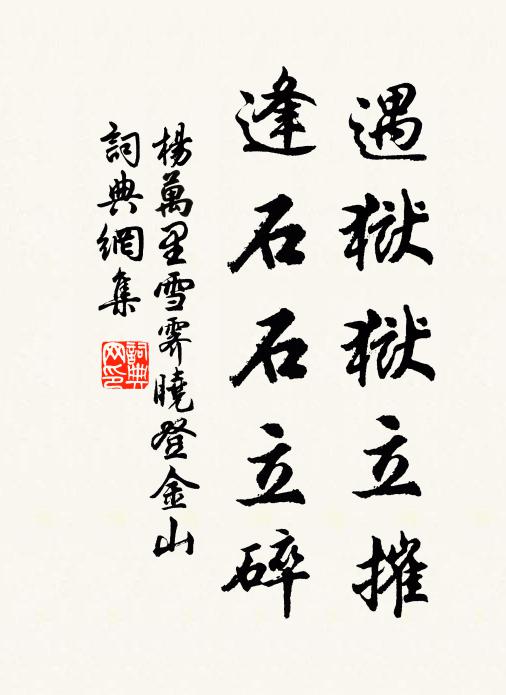 遇獄獄立摧
逢石石立碎
楊萬里雪霽曉登金山
詞典網集
詞典網印